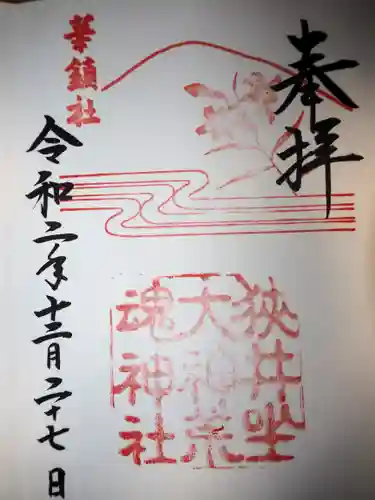 奉拝
華鎮社
狭井坐
大神荒
魂神社
令和二年十二月二十七日